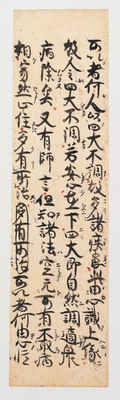 所以者何人以四大不調故多諸疾患此由心識上縁
故令四大不調若安心在下四大即自然調適衆
病除矣又有師言但知諸法空无所有不取病
相寂然止住多有所治多有所治所以者何由心憶